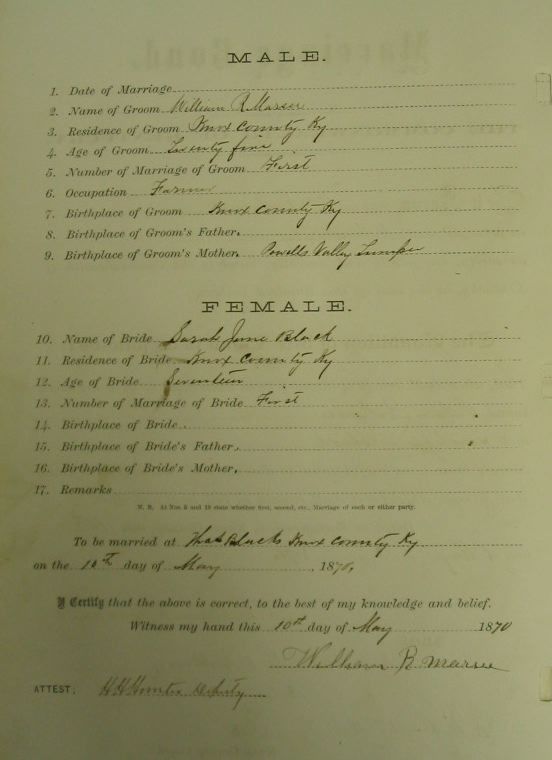 MALE.
1. Date of Marriage
2. Name of Groom William R. Marsee
3. Residence of Groom Knox County Ky
4. Age of Groom Twenty five
5. Number of Marriage of Groom First
6. Occupation Farmer
7. Birthplace of Groom Knox County Ky
8. Birthplace of Groom's Father.
9. Birthplace of Groom's Mother. Powells Valley
FEMALE.
10. Name of Bride Sarah Jane Black
11. Residence of Bride Knox County Ky
12. Age of Bride Seventeen
13. Number of Marriage of Bride First
14. Birthplace of Bride
15. Birthplace of Bride's Father.
16. Birthplace of Bride's Mother.
17. Remarks
N. B. At Nos. 5 and 13 state whether first, second, etc., Marriage of each or either party.
To be married at Blacks Knox County Ky
on the day of May, 1870.
I Certify that the above is correct, to the best of my knowledge and belief.
Witness my hand this 10th day of May 1870
William R Marsee
ATTEST: Deputy